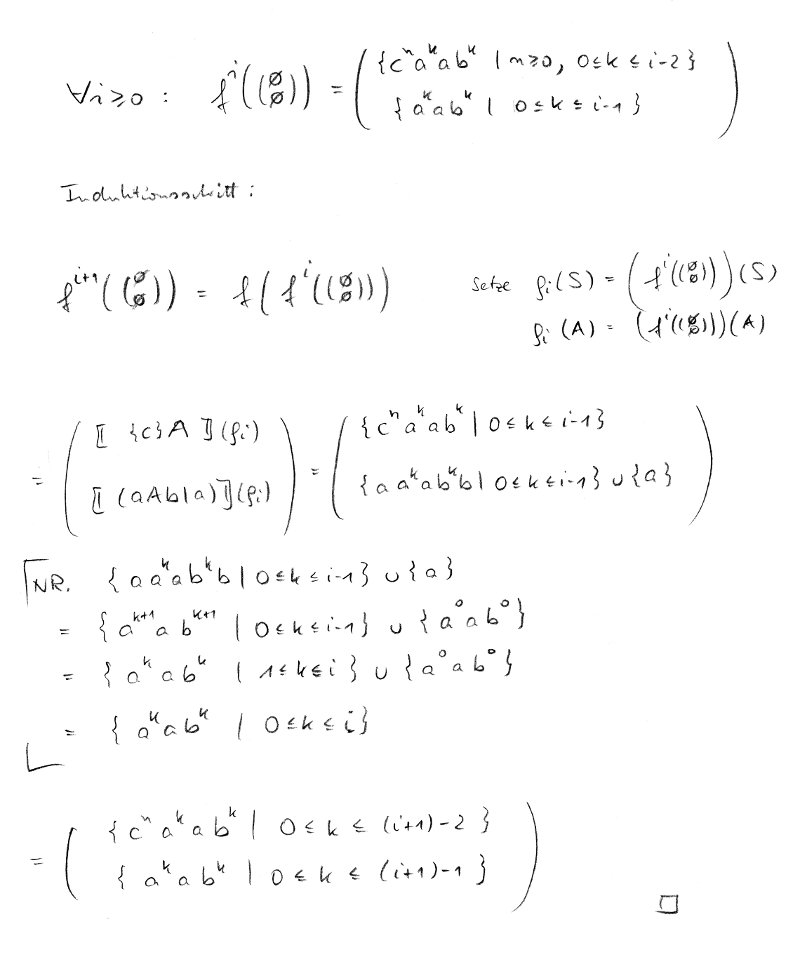 ∀i≥0 : fⁱ((∅ ∅)) = ( {cⁿaᵏabᵏ | n≥0, 0≤k≤i-2}
{aᵏabᵏ | 0≤k≤i-1} )
Induktionsschritt :
fⁱ⁺¹((∅ ∅)) = f(fⁱ((∅ ∅))) Setze ρᵢ(S) = (fⁱ((∅ ∅)))(S)
ρᵢ(A) = (fⁱ((∅ ∅)))(A)
= ( ⟦ {c}A ⟧(ρᵢ) ) = ( {cⁿaᵏabᵏ | 0≤k≤i-1}
⟦ (aAb|a) ⟧(ρᵢ) {a aᵏabᵏb | 0≤k≤i-1} ∪ {a} )
NR. {a aᵏabᵏb | 0≤k≤i-1} ∪ {a}
= {aᵏ⁺¹abᵏ⁺¹ | 0≤k≤i-1} ∪ {a⁰ab⁰}
= {aᵏabᵏ | 1≤k≤i} ∪ {a⁰ab⁰}
= {aᵏabᵏ | 0≤k≤i}
= ( {cⁿaᵏabᵏ | 0≤k≤(i+1)-2}
{aᵏabᵏ | 0≤k≤(i+1)-1} )
□